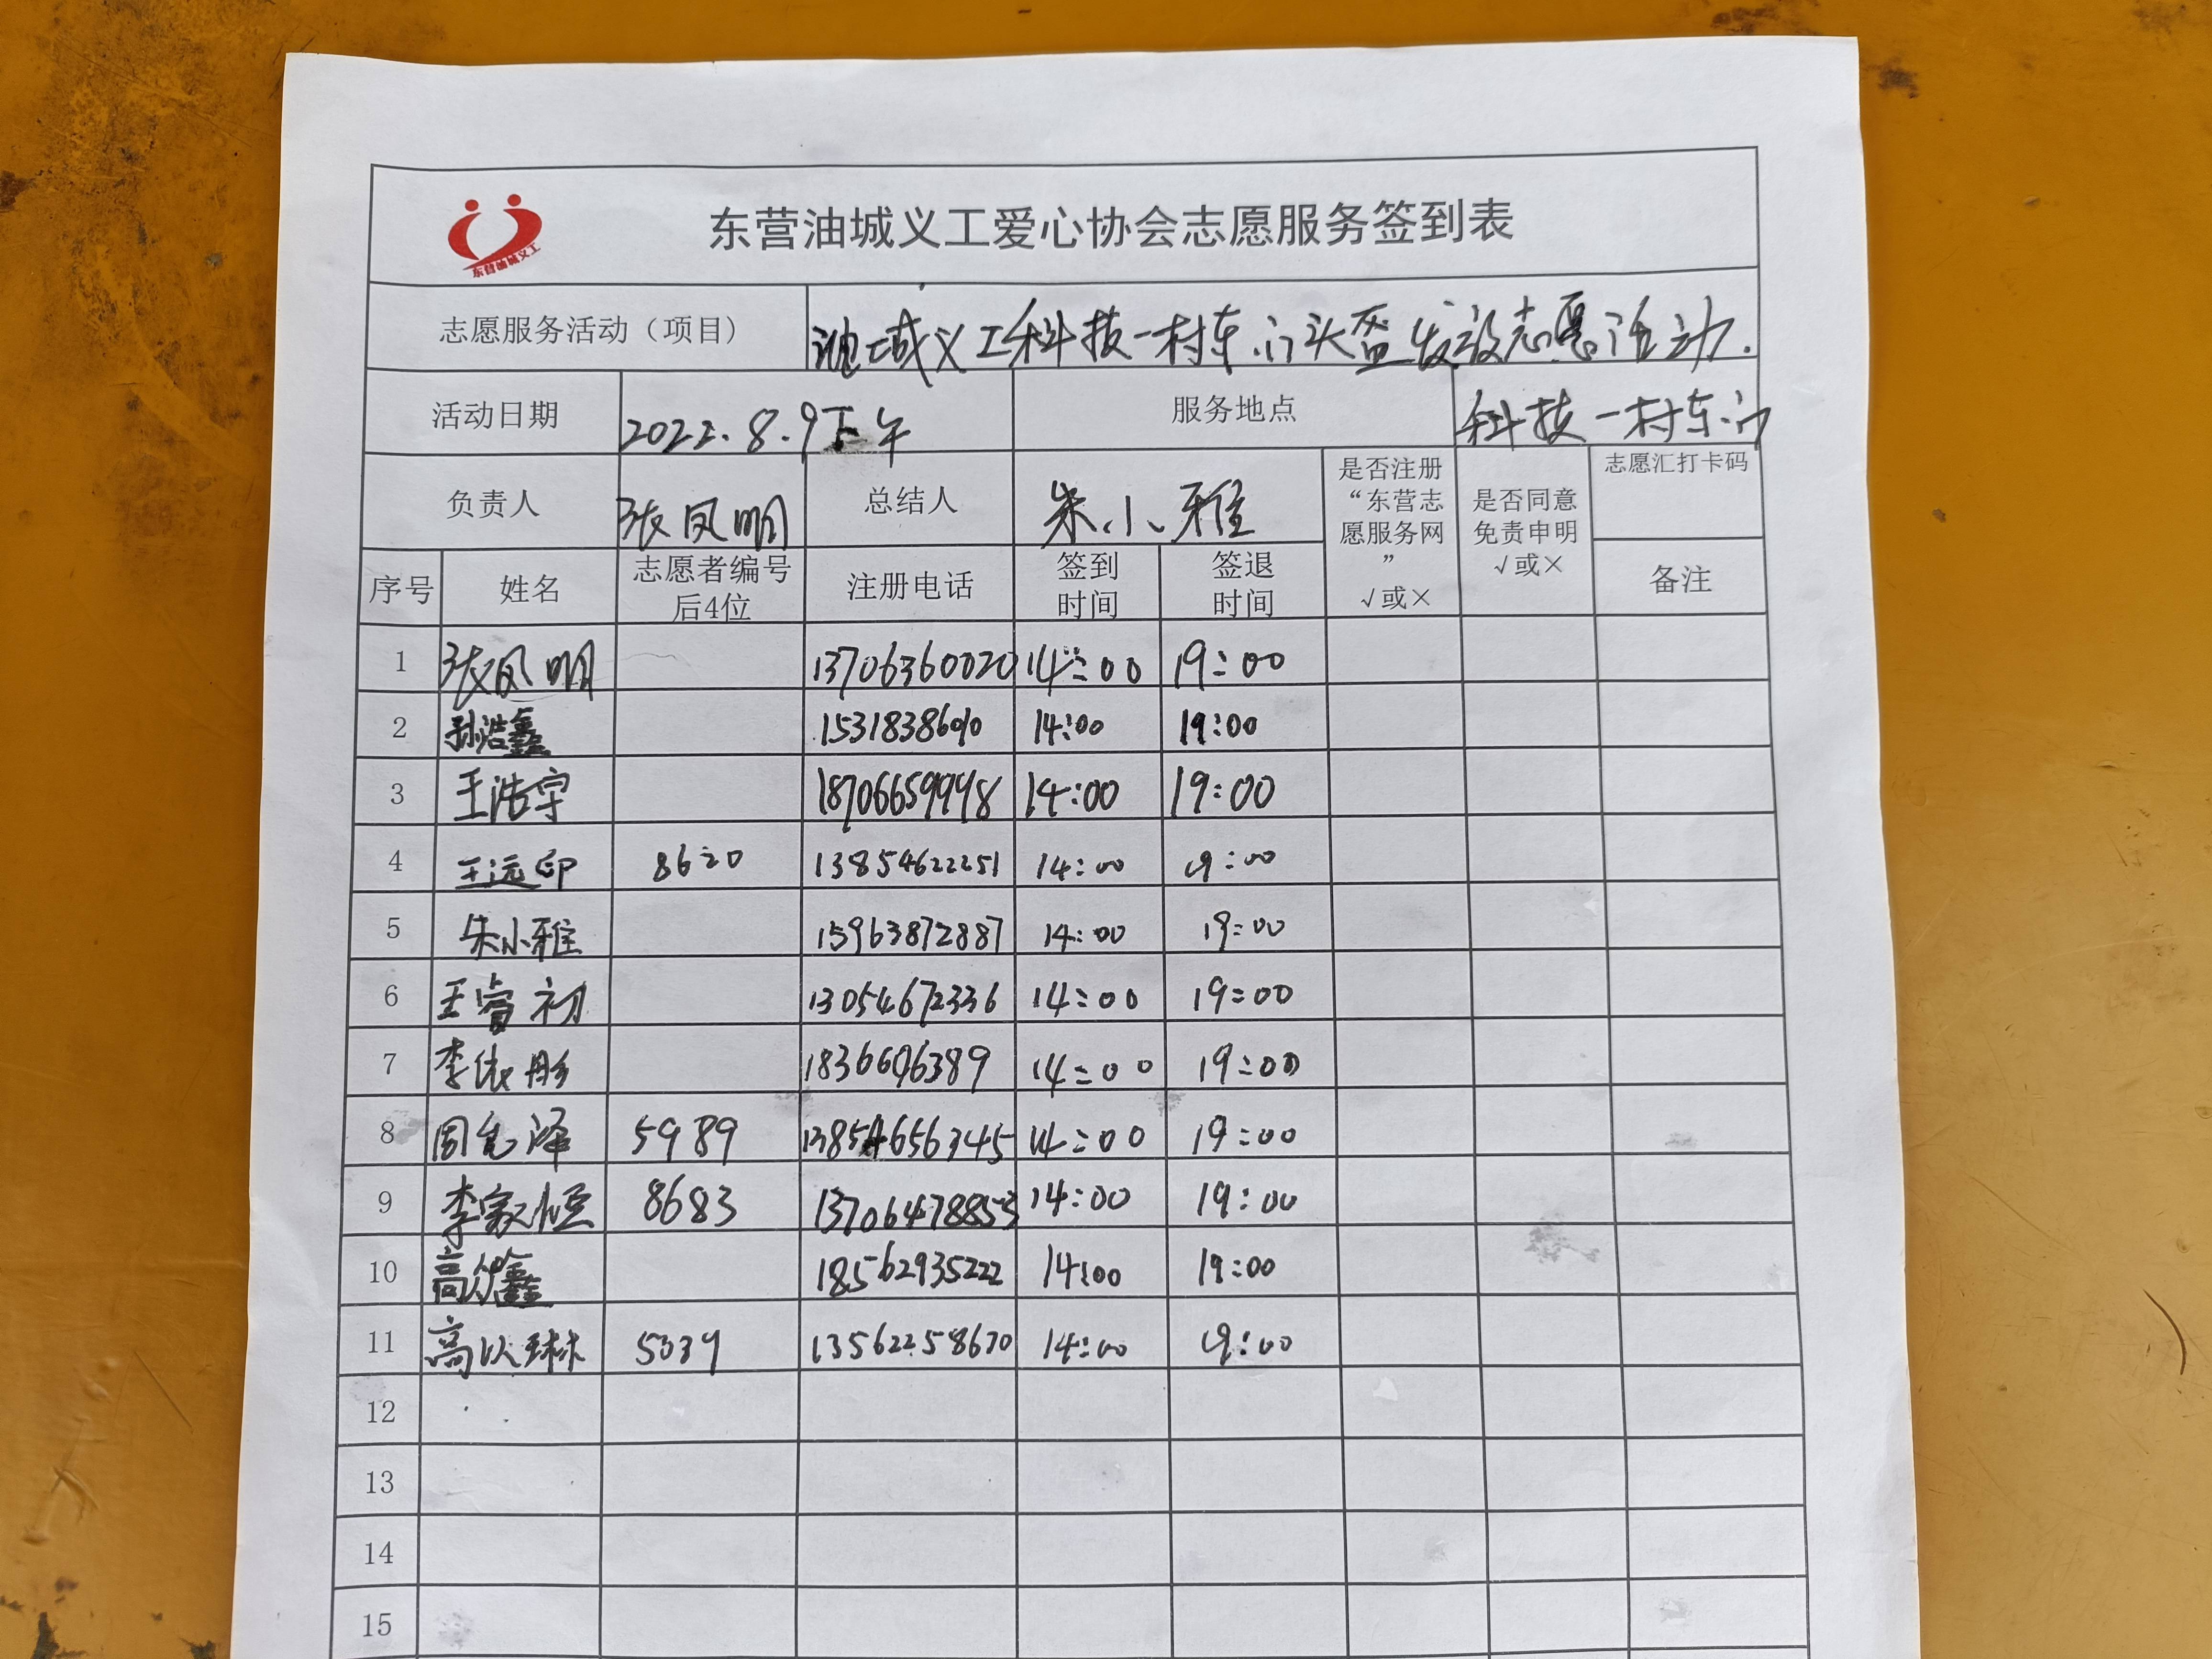 东营油城义工
东营油城义工爱心协会志愿服务签到表
志愿服务活动（项目） 油城义工科技一村东门头盔发放志愿活动.
活动日期 2022.8.9下午 服务地点 科技一村东门
负责人 张凤明 总结人 朱小雅 是否注册“东营志愿服务网” √或× 是否同意免责申明 √或× 志愿汇打卡码
序号 姓名 志愿者编号后4位 注册电话 签到时间 签退时间 备注
1 张凤明 13706360020 14:00 19:00
2 孙浩鑫 15318386090 14:00 19:00
3 王浩宇 18706659998 14:00 19:00
4 王远印 8620 13854622251 14:00 19:00
5 朱小雅 15963872887 14:00 19:00
6 王睿初 13054672336 14:00 19:00
7 李依彤 14:00 19:00
8 周 泽 5989 13854656345 14:00 19:00
9 李家恒 8683 13706478853 14:00 19:00
10 高 鑫 18562935222 14:00 19:00
11 高以琳 5039 13562258670 14:00 19:00
12
13
14
15